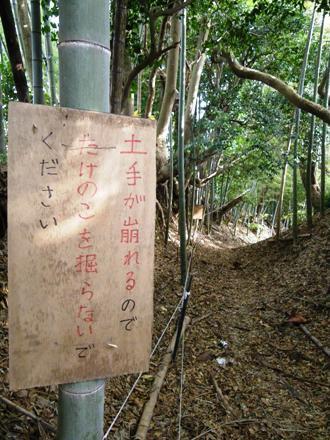 土手が崩れるので
たけのこを掘らないで
ください